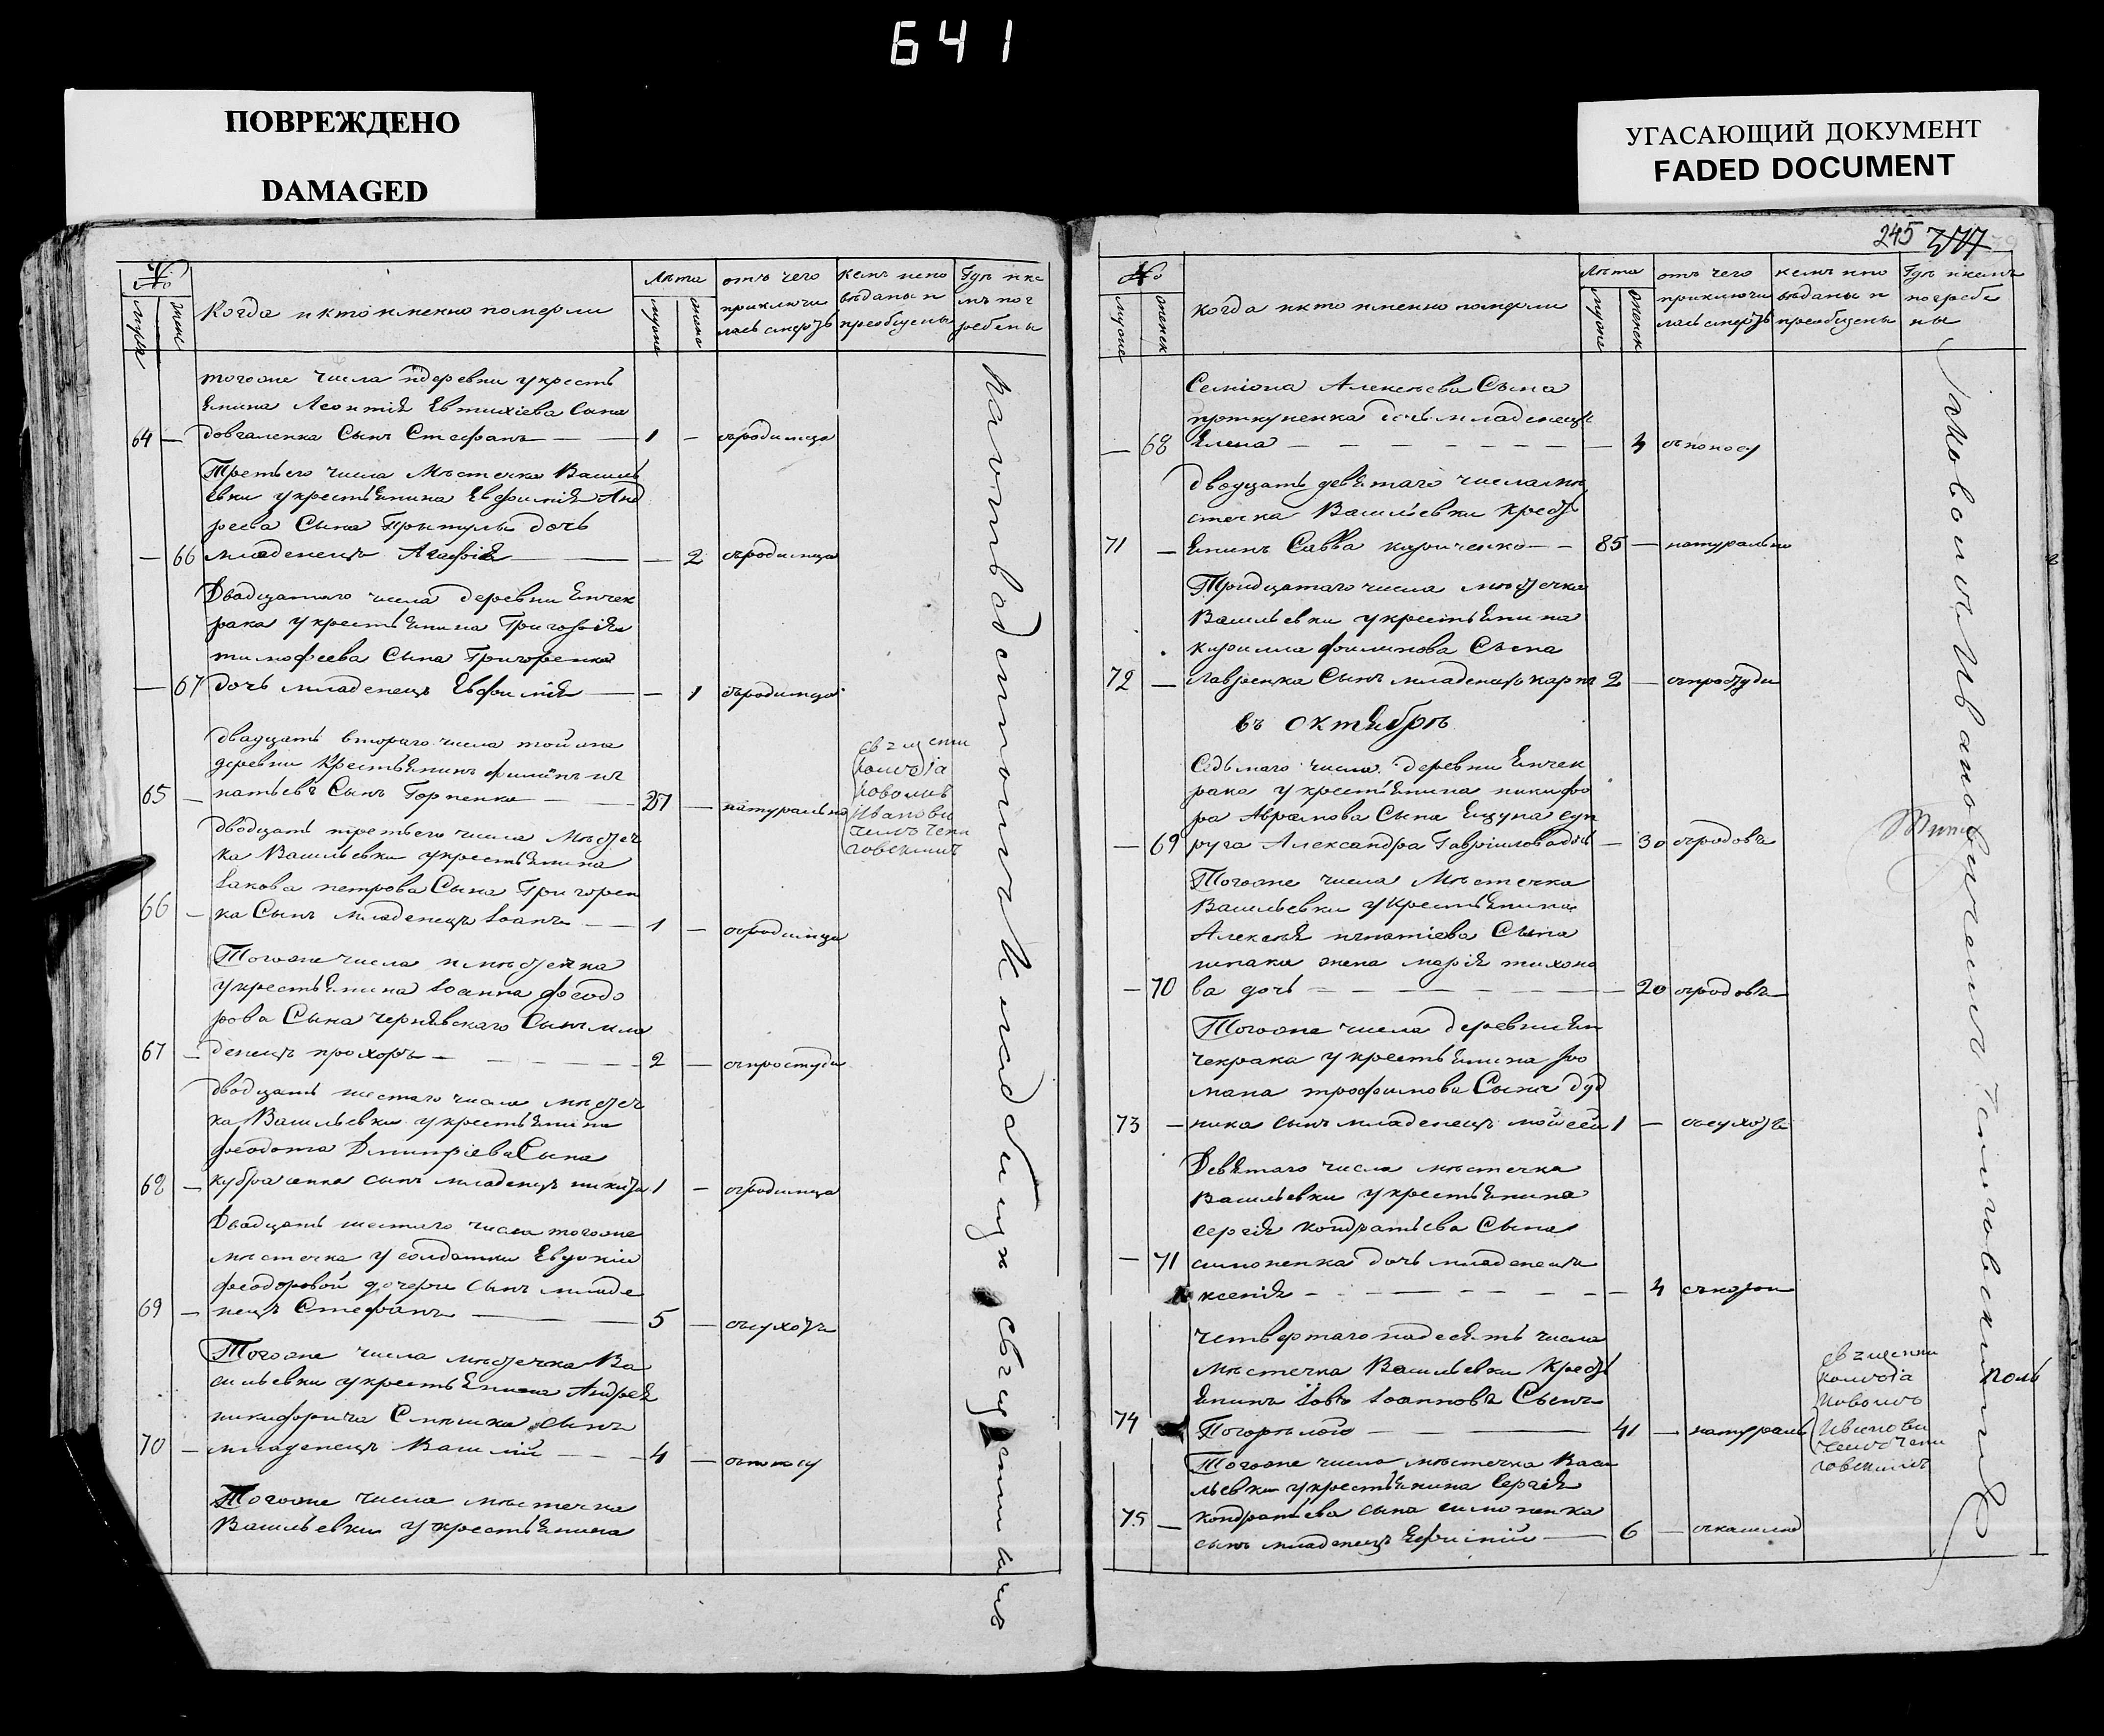 641
ПОВРЕЖДЕНО
DAMAGED
УГАСАЮЩИЙ ДОКУМЕНТ
FADED DOCUMENT
№
Когда и кто именно померли
Лѣта
отъ чего
приключи
лась смерть
кемъ испо
вѣданы и
преобщены
Гдѣ и ке
мъ пог
ребены
тогоже числа и деревни у кресть
янина Леонтія Евтихіева Сына
64 — довгаленка Сынъ Стефанъ — 1 — отъ родимца
Третьего числа Мѣстечка Василь
евки у крестьянина Евфимія Анд
реева Сына Притулы дочь
— 66 младенецъ Агафія — 2 отъ родимца
Двадцатого числа деревни Янчек
рака у крестьянина Григорія
тимофеева Сына Григоренка
— 67 дочь младенецъ Евфимія — 1 отъ родимца
двадцать втораго числа той же
деревни Крестьянинъ филипъ иг
65 — натьевъ Сынъ Горпенко — — натурально
двадцать третьего числа Мѣстеч
ка Васильевки у крестьянина
Іакова петрова Сына Григорен
66 — ка Сынъ младенецъ Іоанъ — 1 — отъ родимца
Тогоже числа и мѣстечка
у крестьянина Іоанна феодо
рова Сына чернявскаго Сынъ мла
67 — денецъ прохоръ — 2 — отъ простуди
двадцать шестаго числа мѣстеч
ка Васильевки у крестьянина
феодота Дмитріева Сына
68 — сынъ младенецъ никита 1 — отъ родимца
Двадцать шестаго числа тогоже
мѣстечка у солдатки Евдокіи
феодоровой дочери сынъ младе
69 — нецъ Стефанъ — 5 — отъ сухотъ
Тогоже числа мѣстечка Ва
сильевки у крестьянина Андрея
никифорича сынъ
70 — младенецъ Василій — 4 — отъ поносу
Тогоже числа мѣстечка
Васильевки у крестьянина
священни
комъ Іа
ковомъ
Иванови
чемъ чепи
говскимъ
на исповѣд
священникъ
245
№
когда и кто именно померли
Лѣта
отъ чего
приключи
лась смерть
кемъ испо
вѣданы и
преобщены
Гдѣ и кемъ
погребе
ны
Семіона Алексѣева Сына
дочь младенецъ
— 68 Елена — 4 отъ поносу
двадцать девятаго числа мѣ
стечка Васильевки Кресть
71 — янинъ Савва кириченко — 85 — натурально
Тридцатаго числа мѣстечка
Васильевки у крестьянина
кирилла филипова Сына
72 — Лавренка Сынъ младенецъ карпъ 2 — отъ простуди
въ октябрѣ
Седьмаго числа деревни Янчек
рака у крестьянина никифо
ра Аврамова Сына Ещука суп
— 69 руга Александра Гавріилова дочь — 30 отъ родовъ
Тогоже числа Мѣстечка
Васильевки у Крестьянина
Алексѣя игнатіева Сына
шпака жена марія тихоно
— 70 ва дочь — 20 отъ родовъ
Тогоже числа деревни Ян
чекрака у крестьянина Ро
мана трофимова Сына дуд
73 — ника сынъ младенецъ мойсей 1 — отъ сухотъ
Девятаго числа мѣстечка
Васильевки у крестьянина
сергія кондратьева Сына
— 71 симоненка дочь младенецъ
ксенія — 4 отъ кори
четвертаго надесять числа
Мѣстечка Васильевки Кресть
янинъ Іовъ Іоанновъ Сынъ
74 Погорѣлой — 41 — натураль
Тогоже числа мѣстечка Васи
льевки у крестьянина Сергія
75 — кондратьева сына симоненка
сынъ младенецъ Ефимій — 6 — отъ кашлю
священни
комъ Іа
ковомъ
Иванови
чемъ чепи
говскимъ
Іаковомъ Ивановичемъ Чепиговскимъ